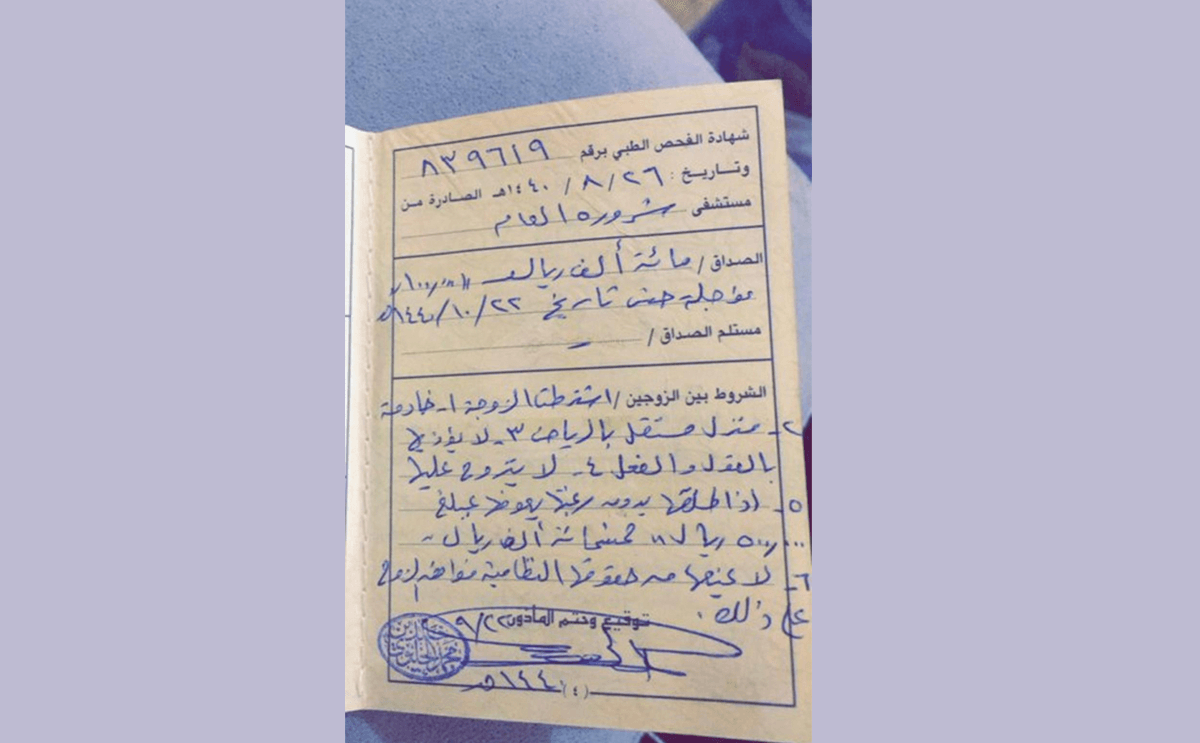 شهادة الفحص الطبي برقم ٨٣٩٦١٩
وتاريخ : ٢٦ / ٨ / ١٤٤٠هـ الصادرة من
مستشفى شروره العام
الصداق / مائة ألف ريال ١٠٠٠٠٠
مؤجلة حتى تاريخ ٢٢ / ١٠ / ١٤٤٠هـ
مستلم الصداق / -
الشروط بين الزوجين / اشترطت الزوجة ١- خادمة
٢- منزل مستقل بالرياض ٣- لا يؤذيها
بالقول والفعل ٤- لا يتزوج عليها
٥- اذا طلقها بدون رغبتها يعوضها بمبلغ
٥٠٠٠٠٠ ريال خمسمائة ألف ريال
٦- لا يمنعها من حقوقها النظامية فوافق الزوج
على ذلك .
توقيع وختم المأذون ٩/٢٢
١٤٤٠هـ
(٤)